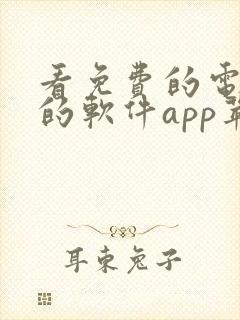 看免費的電
的軟件app
耳東兔子